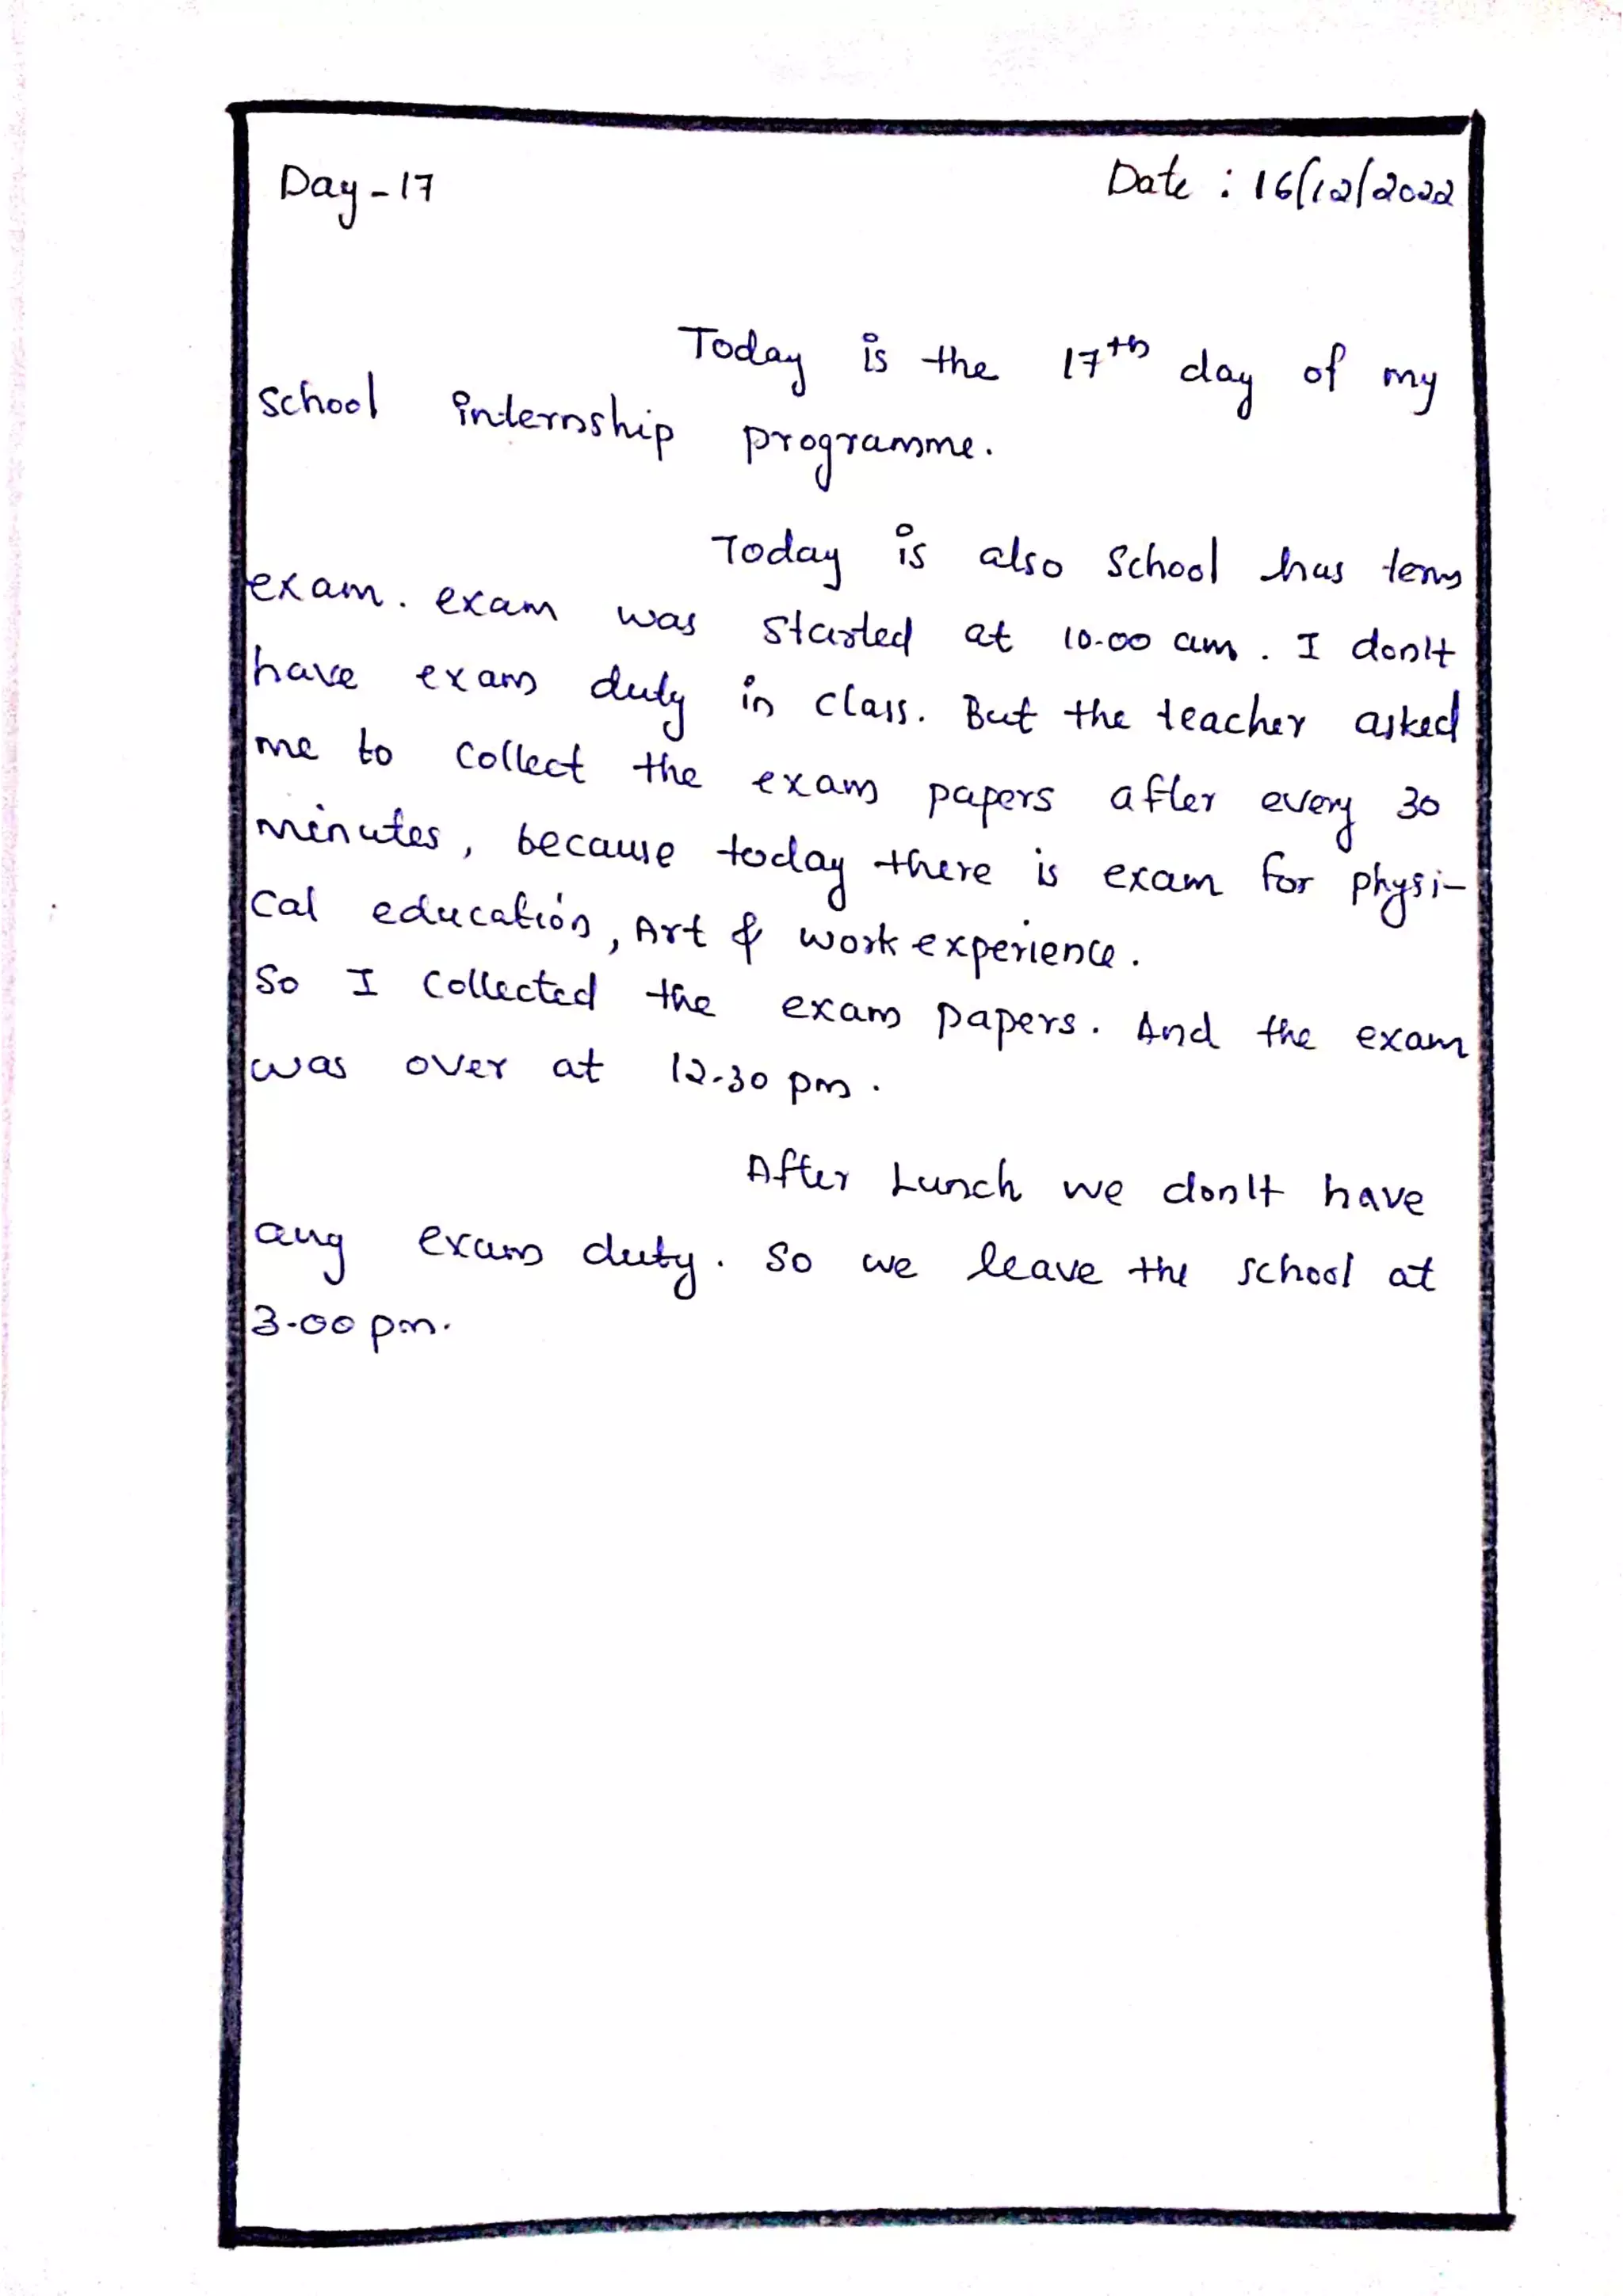 Day-17 Date : 16/12/2022
Today is the 17th day of my
school internship programme.
Today is also School has term
exam. exam was started at 10.00 am. I don't
have exam duty in class. But the teacher asked
me to collect the exam papers after every 30
minutes, because today there is exam for physi-
cal education, Art & work experience.
So I collected the exam papers. And the exam
was over at 12.30 pm.
After Lunch we don't have
any exam duty. So we leave the school at
3.00 pm.